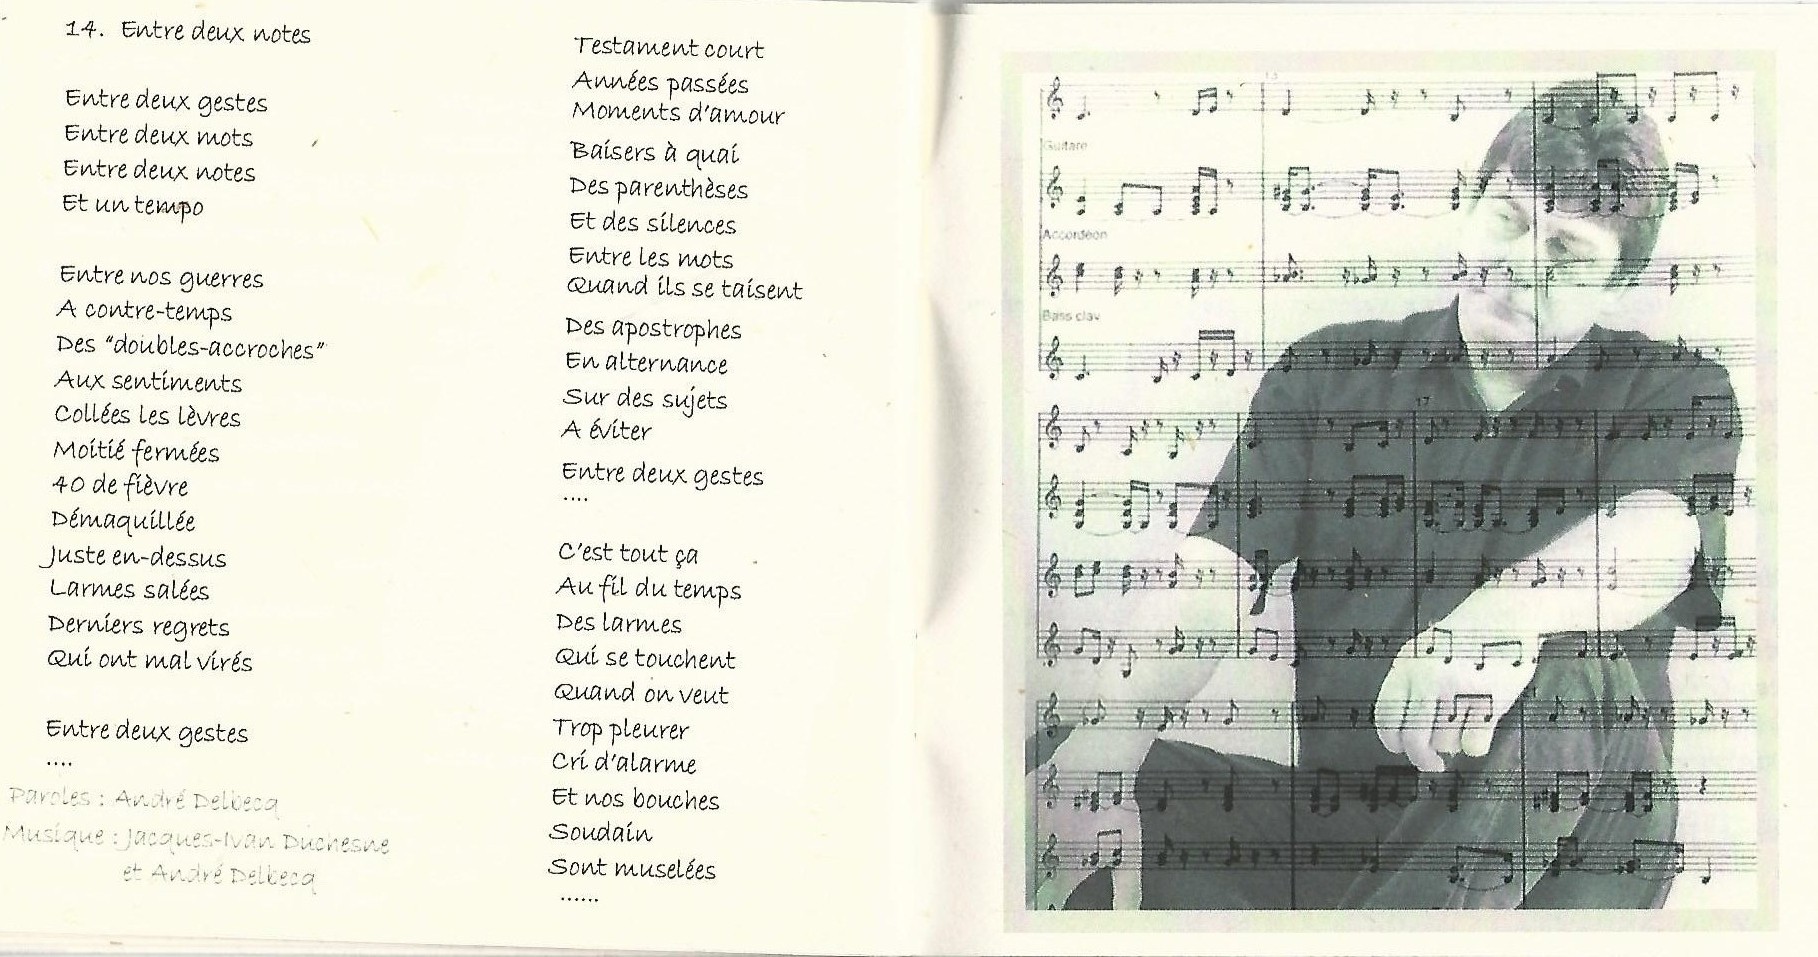 14. Entre deux notes
Entre deux gestes
Entre deux mots
Entre deux notes
Et un tempo
Entre nos guerres
A contre-temps
Des "doubles-accroches"
Aux sentiments
Collées les lèvres
Moitié fermées
40 de fièvre
Démaquillée
Juste en-dessus
Larmes salées
Derniers regrets
Qui ont mal virés
Entre deux gestes
....
Paroles : André Delbecq
Musique : Jacques-Ivan Duchesne
et André Delbecq
Testament court
Années passées
Moments d'amour
Baisers à quai
Des parenthèses
Et des silences
Entre les mots
Quand ils se taisent
Des apostrophes
En alternance
Sur des sujets
A éviter
Entre deux gestes
....
C'est tout ça
Au fil du temps
Des larmes
Qui se touchent
Quand on veut
Trop pleurer
Cri d'alarme
Et nos bouches
Soudain
Sont muselées
......
13
Guitare
Accordéon
Bass clav
17
21